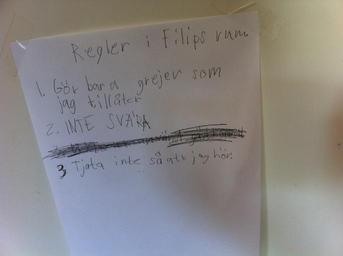 Regler i Filips rum
1. Gör bara grejer som
jag tillåter
2. INTE SVÄRA
3 Tjata inte så att jag hör.